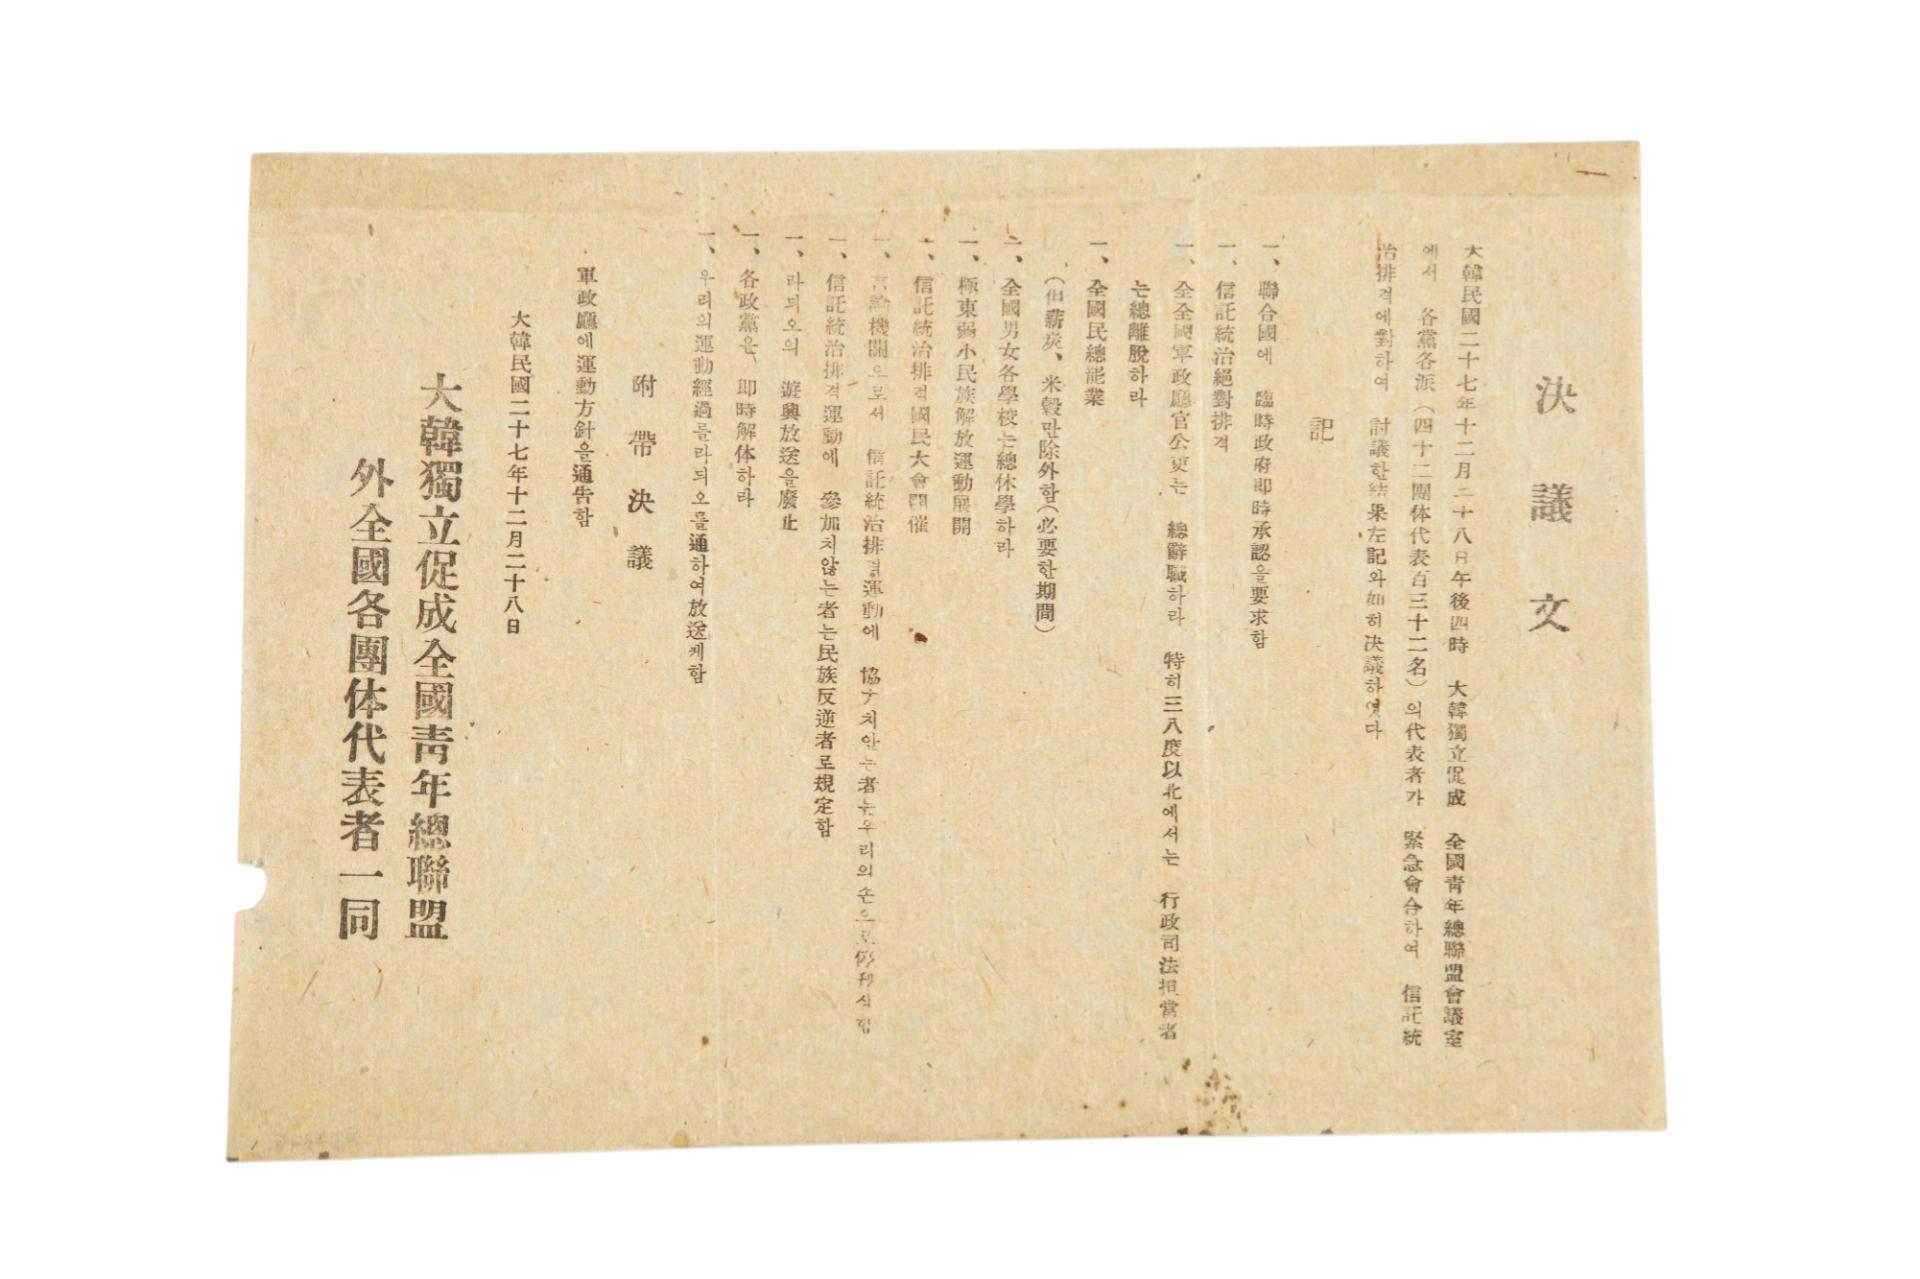 決議文
大韓民國二十七年十二月二十八日午後四時 大韓獨立促成 全國靑年總聯盟會議室
에서 各黨各派（四十二團体代表百三十二名）의代表者가 緊急會合하여 信託統
治排격에對하여 討議한結果左記와如히決議하엿다
記
一、聯合國에 臨時政府即時承認을要求함
一、信託統治絕對排격
一、全全國軍政廳官公吏는 總辭職하라 特히三八度以北에서는 行政司法担當者
는總離脫하라
一、全國民總罷業
（但薪炭、米穀만除外함（必要한期間）
一、全國男女各學校는總休學하라
一、極東弱小民族解放運動展開
一、信託統治排격國民大會開催
一、言論機關으로서 信託統治排격運動에 協力치안는者는우리의손으로 함
一、信託統治排격運動에 參加치않는者는民族反逆者로規定함
一、라듸오의 遊興放送을廢止
一、各政黨은 即時解体하라
一、우리의運動經過를라듸오를通하여放送케함
附帶決議
軍政廳에運動方針을通告함
大韓民國二十七年十二月二十八日
大韓獨立促成全國靑年總聯盟
外全國各團体代表者一同